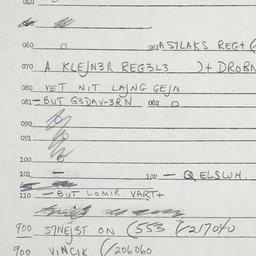 060
060 057A STLAKS REG+
070 A KLEJN3R REG3L3 )+ DROBN
080 VET NIT LAJNG GEJN
081 - BUT G3DAV-3RN 082
090
091
100
101 — 102 — Q ELSWH.
110 — BUT LOMIR VART+
900 STNEJ3T ON (553 (/217040
900 VINCIK (/206060